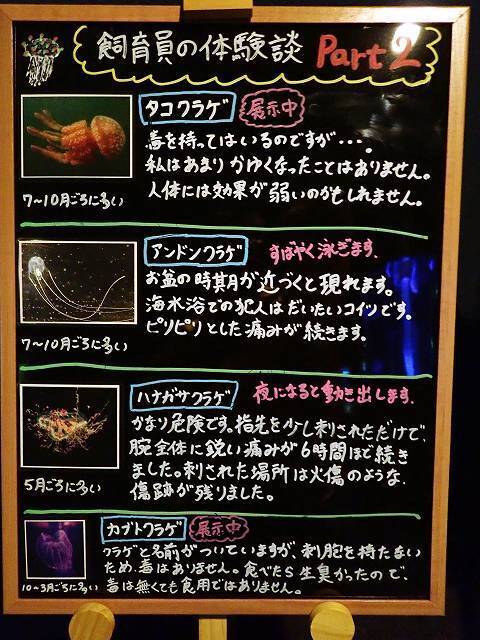 飼育員の体験談 Part 2
タコクラゲ 展示中
毒を持ってはいるのですが・・・。
私はあまりかゆくなったことはありません。
人体には効果が弱いのかもしれません。
7~10月ごろに多い
アンドンクラゲ すばやく泳ぎます。
お盆の時期が近づくと現れます。
海水浴での犯人はだいたいコイツです。
ピリピリとした痛みが続きます。
7~10月ごろに多い
ハナガサクラゲ 夜になると動き出します。
かなり危険です。指先を少し刺されただけで、
腕全体に鋭い痛みが6時間ほど続き
ました。刺された場所は火傷のような、
傷跡が残りました。
5月ごろに多い
カブトクラゲ 展示中
クラゲと名前がついていますが、刺胞を持たない
ため、毒はありません。食べたら生臭かったので、
毒は無くても食用ではありません。
10~3月ごろに多い